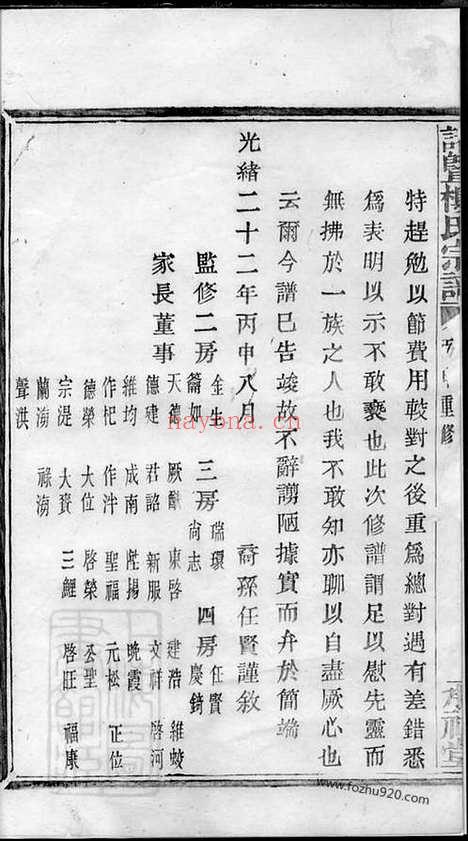 暨楊氏宗譜 重修
特趕勉以節費用較對之後重爲總對遇有差錯悉
爲表明以示不敢褻也此次修譜謂足以慰先靈而
無拂於一族之人也我不敢知亦聊以自盡厥心也
云爾今譜已告竣故不辭謭陋據實而弁於簡端
光緒二十二年丙申八月 裔孫任賢謹敘
監修二房 金生 籥如 三房 瑞環 尚志 四房 任賢 慶錡
家長董事
天德 厥猷 東啓 建浩 維蛟
德建 君詔 新服 文祥 啓河
維均 成南 陞揚 晚霞
作杞 作泮 聖福 元松 正位
德榮 大位 啓榮 公聖
宗湜 大賚 三鯉 啓旺 福康
蘭湧 祿湧
聲洪
nayona.cn
www.fozhu920.com